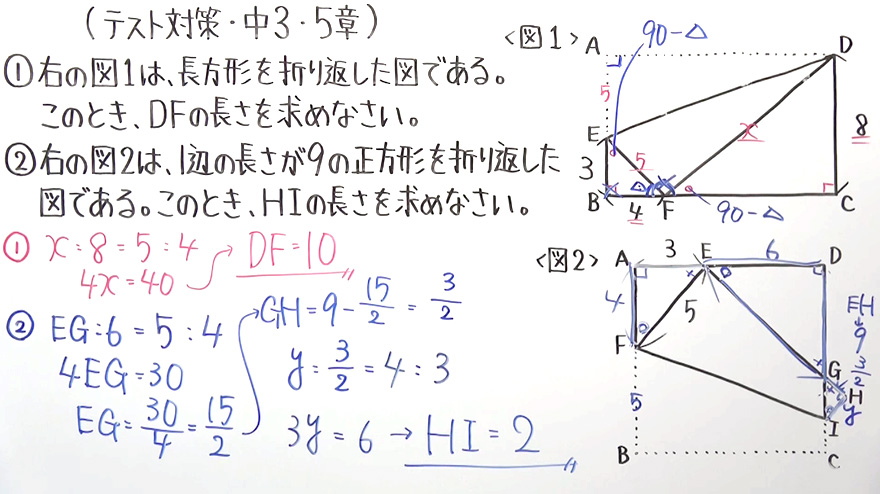 (テスト対策・中3・5章)
①右の図1は、長方形を折り返した図である。
このとき、DFの長さを求めなさい。
②右の図2は、1辺の長さが9の正方形を折り返した
図である。このとき、HIの長さを求めなさい。
① x:8=5:4
4x=40
DF=10
② EG:6=5:4
4EG=30
EG=30/4=15/2
GH=9-15/2=3/2
y:3/2=4:3
3y=6→HI=2
<図1>
90-△
A
D
5
E
x
8
3
5
△
B
4
F
90-△
C
<図2>
A
3
E
6
D
4
5
F
EH
9
G
3/2
H
y
I
5
B
C